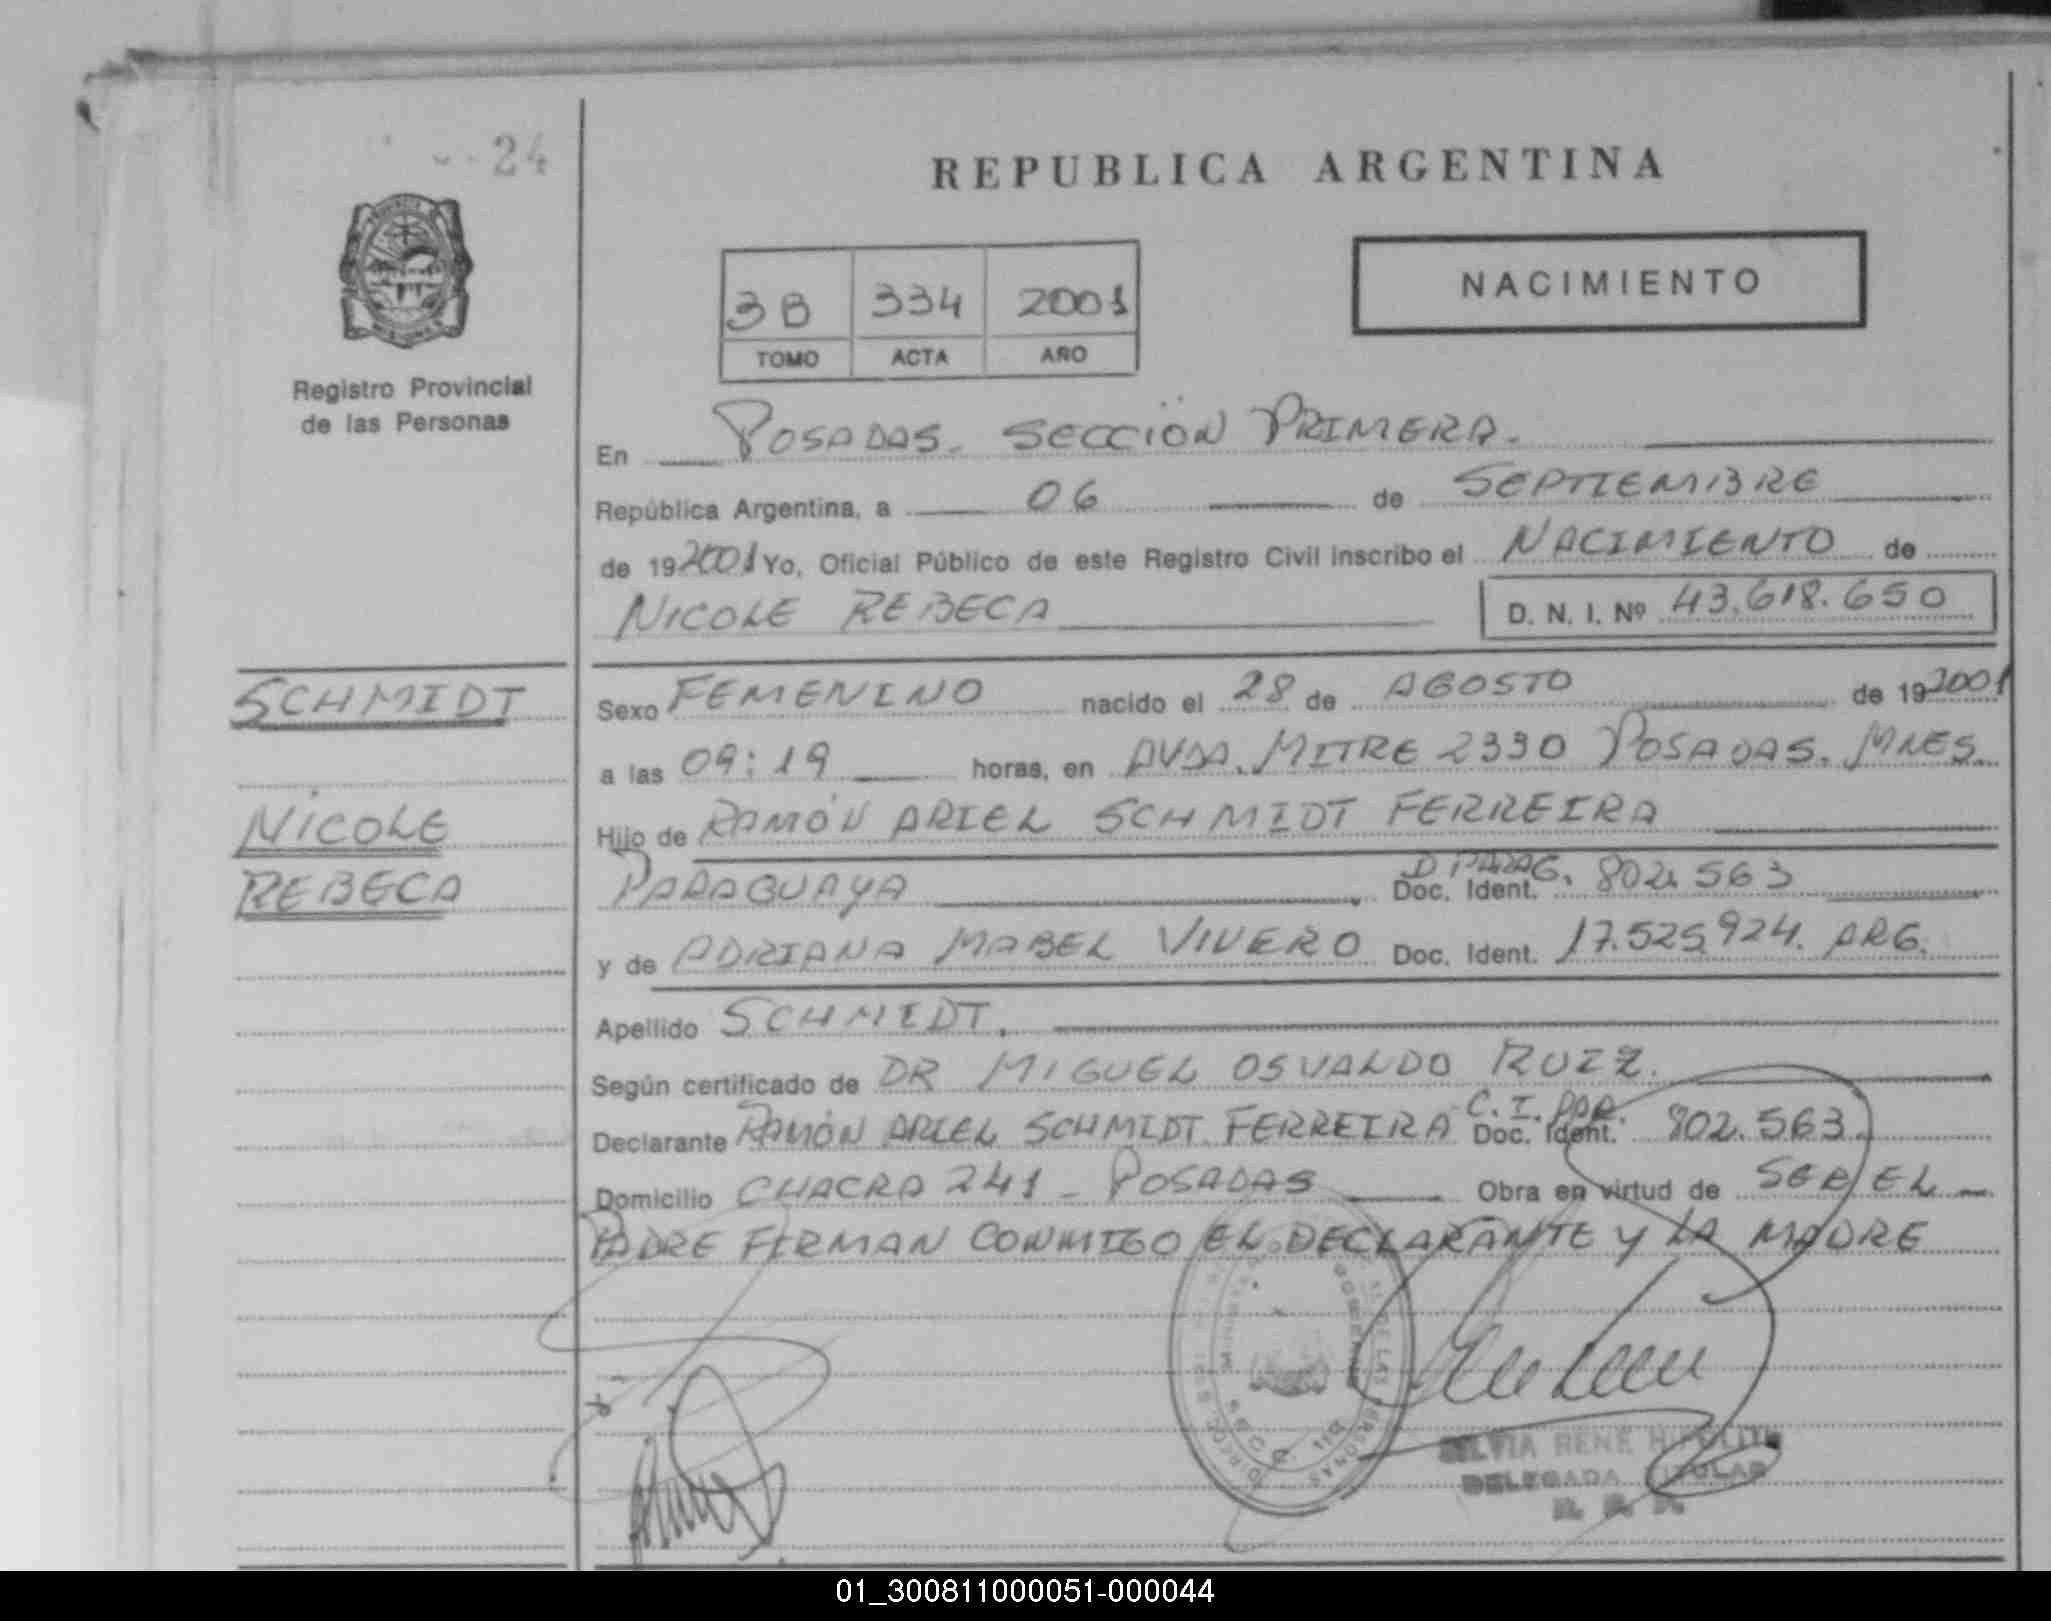 24
REPUBLICA ARGENTINA
NACIMIENTO
3B 334 2001
TOMO ACTA AÑO
Registro Provincial
de las Personas
En POSADAS. SECCIÓN PRIMERA.
República Argentina, a 06 de SEPTIEMBRE
de 192001 Yo, Oficial Público de este Registro Civil inscribo el NACIMIENTO de
NICOLE REBECA D. N. I. Nº 43.618.650
SCHMIDT
NICOLE
REBECA
Sexo FEMENINO nacido el 28 de AGOSTO de 192001
a las 09:19 horas, en AVDA. MITRE 2330 POSADAS. MNES.
Hijo de RAMÓN ARIEL SCHMIDT FERREIRA
PARAGUAYA D PARAG. Doc. Ident. 802.563
y de ADRIANA MABEL VIVERO Doc. Ident. 17.525.924. ARG.
Apellido SCHMIDT.
Según certificado de DR MIGUEL OSVALDO RUIZ.
Declarante RAMÓN ARIEL SCHMIDT FERREIRA C. I. PAR. Doc. Ident. 802.563.
Domicilio CHACRA 241 - POSADAS Obra en virtud de SER EL
PADRE FIRMAN CONMIGO EL DECLARANTE Y LA MADRE
SILVIA RENE
DELEGADA TITULAR
01_300811000051-000044